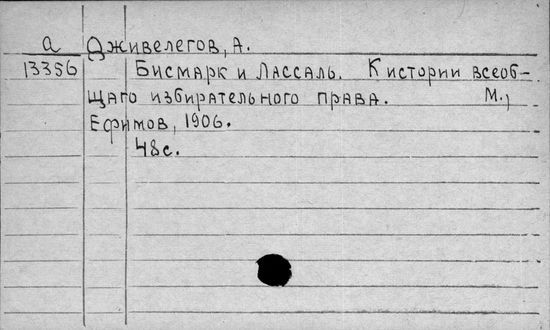 а Дживелегов, А.
13356 Бисмарк и Лассаль. К истории всеоб-
щаго избирательного права. М.,
Ефимов, 1906.
48с.